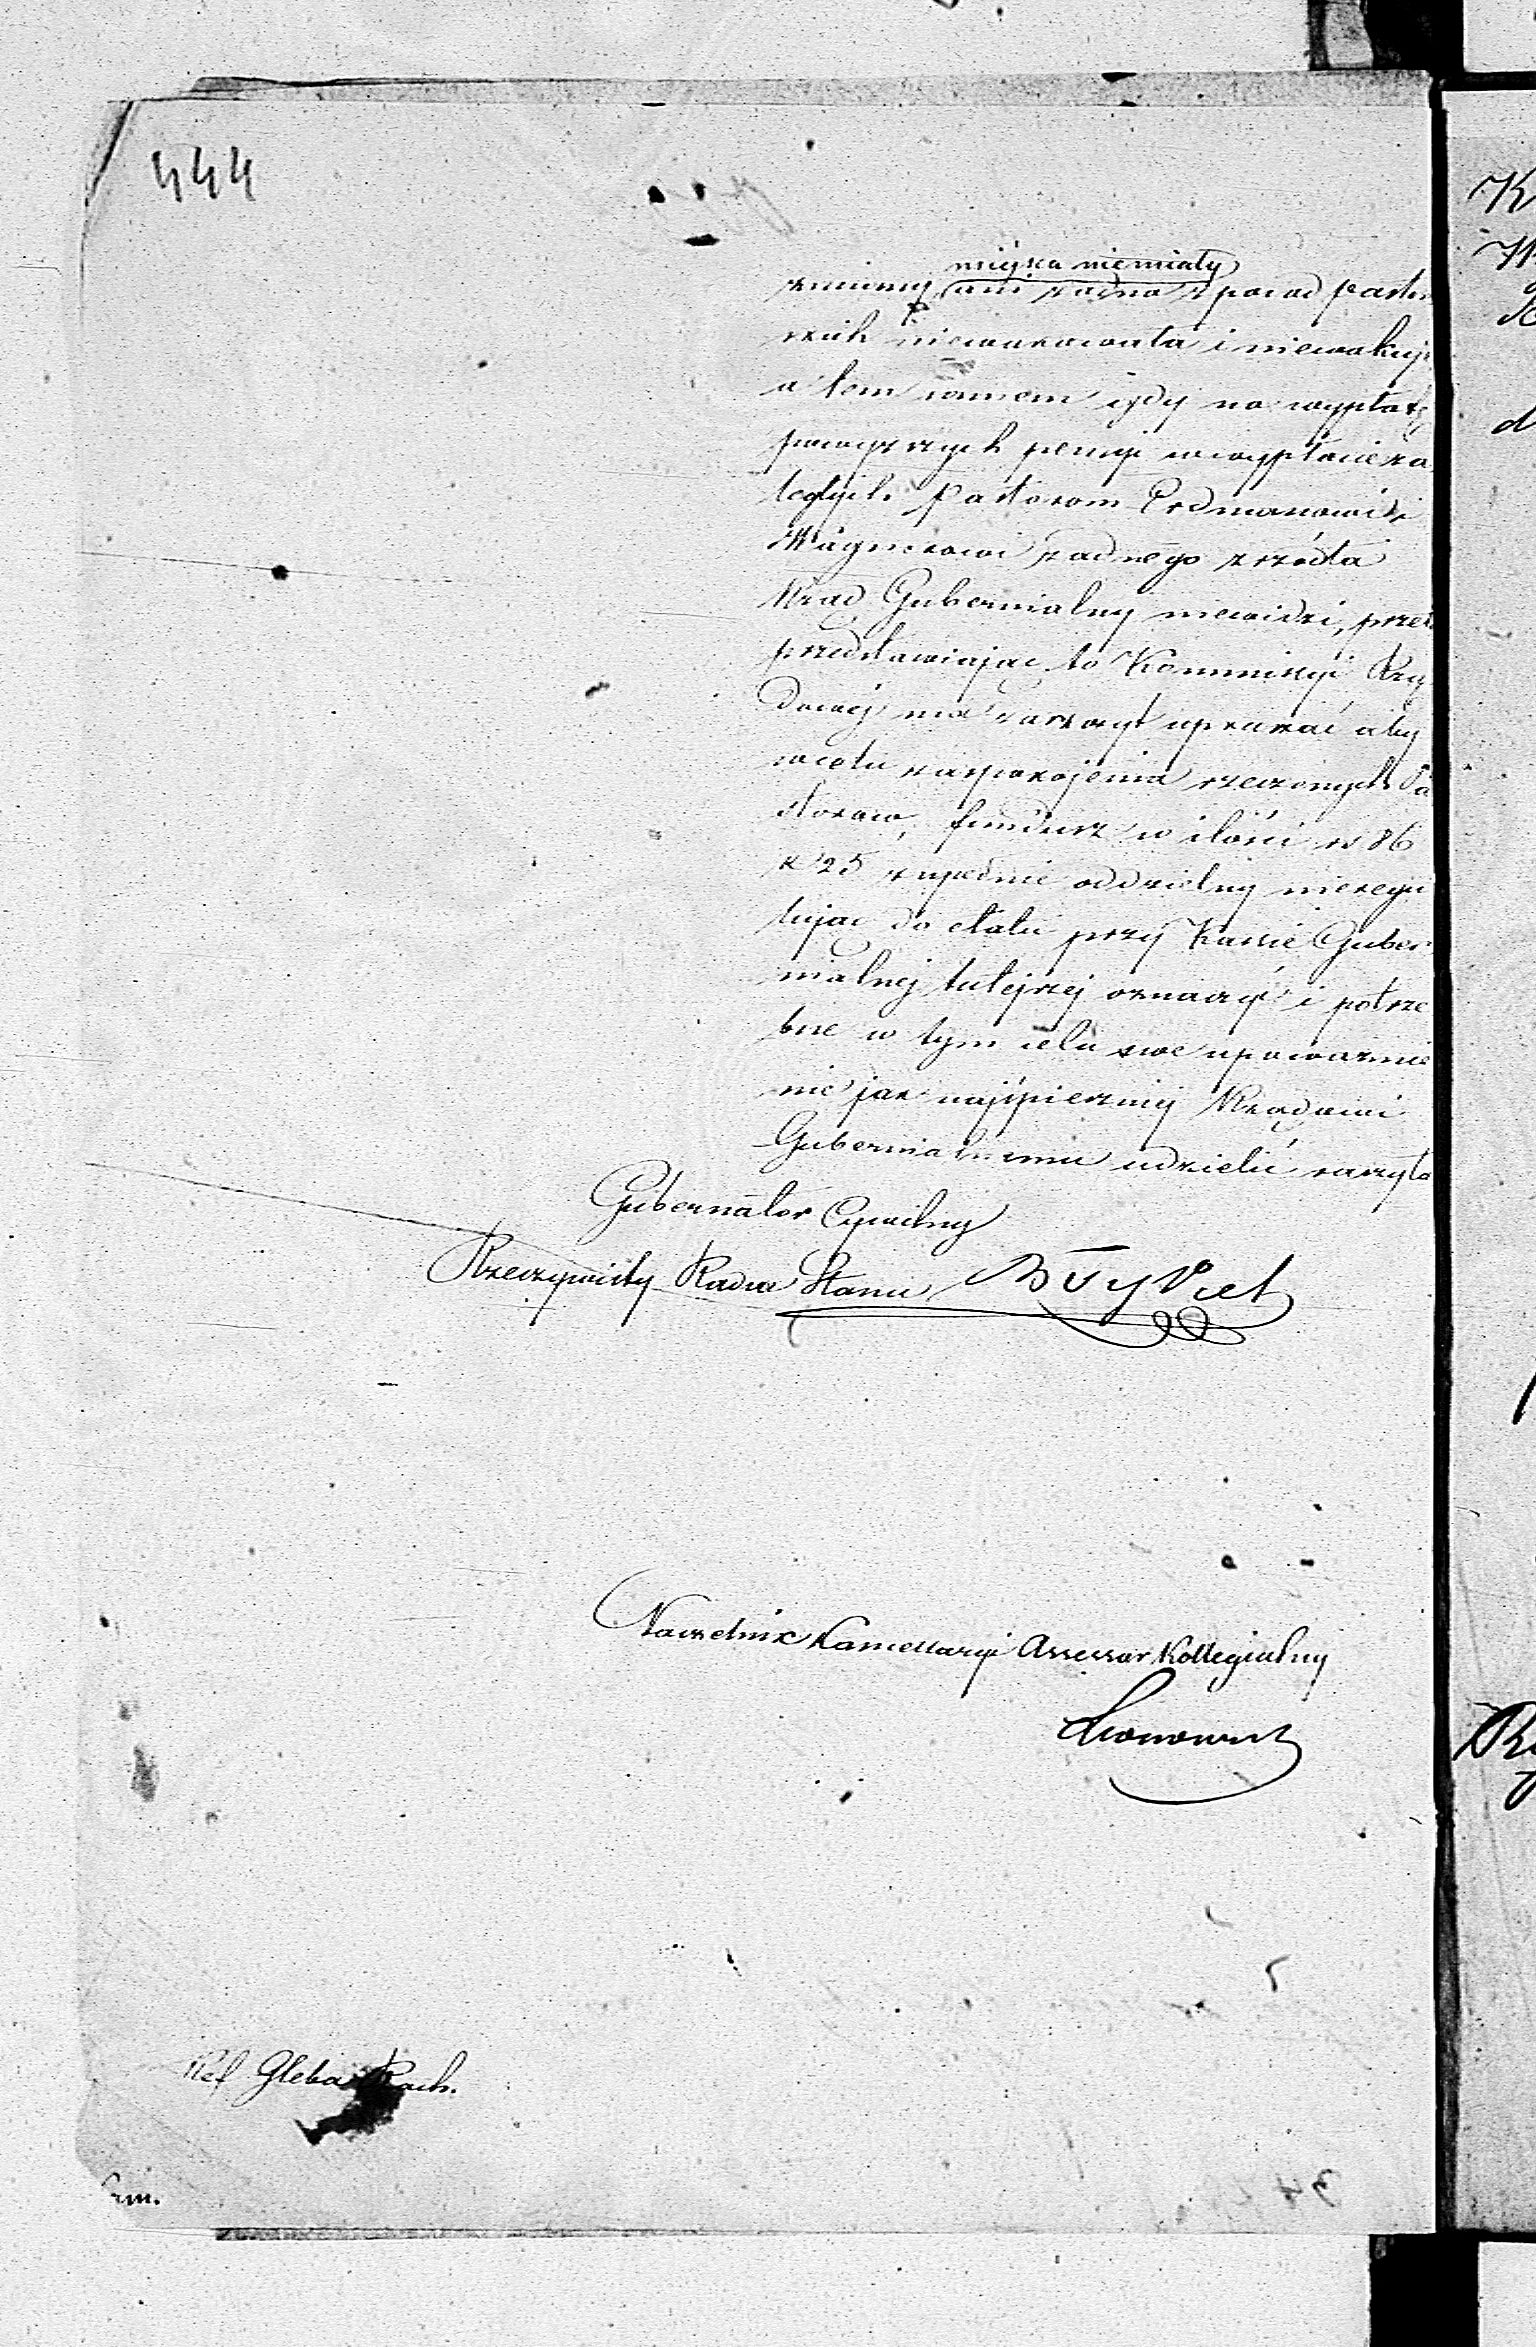 444
miejsca niemiały
zmiany, ani żadna z posad Pasto
rskich niewakowała i niewakuje
a tem samem gdy na wypłatę
powyższych pensyi w wypłacie za
ległych Pastorom Erdmanowi i
Wagnerowi żadnego zrzódła
Rząd Gubernialny niewidzi, prze
przedstawiając to Kommissyi Rzą
dowej ma zaszczyt upraszać aby
w celu zaspokojenia rzeczonych Pa
storów, fundusz w ilości rs 86
k 25 zupełnie oddzielny nieregu,
lując do etatu przy Kassie Guber
nialnej tutejszej oznaczyć i potrze
bne w tym celu swe upoważnie
nie jak najśpieszniej Rządowi
Gubernialnemu udzielić raczyła
Gubernator Cywilny
Rzeczywisty Radca Stanu
Naczelnik Kancellaryi Assessor Kollegialny
Ref Gleba Rach.